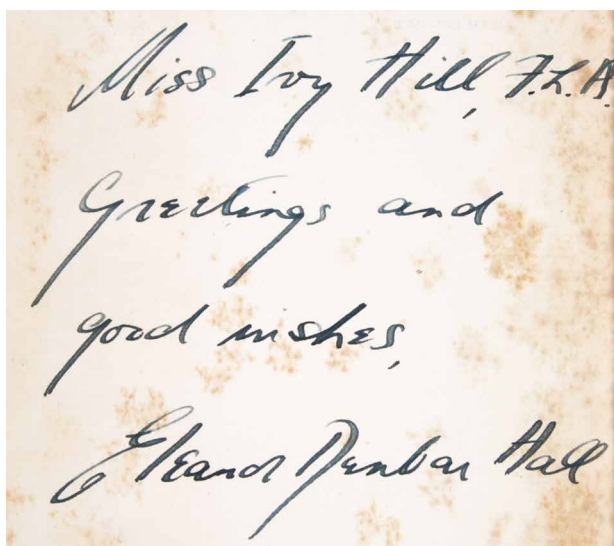 Miss Ivy Hill, F.L.A.
Greetings and
good wishes,
Eleanor Dunbar Hall